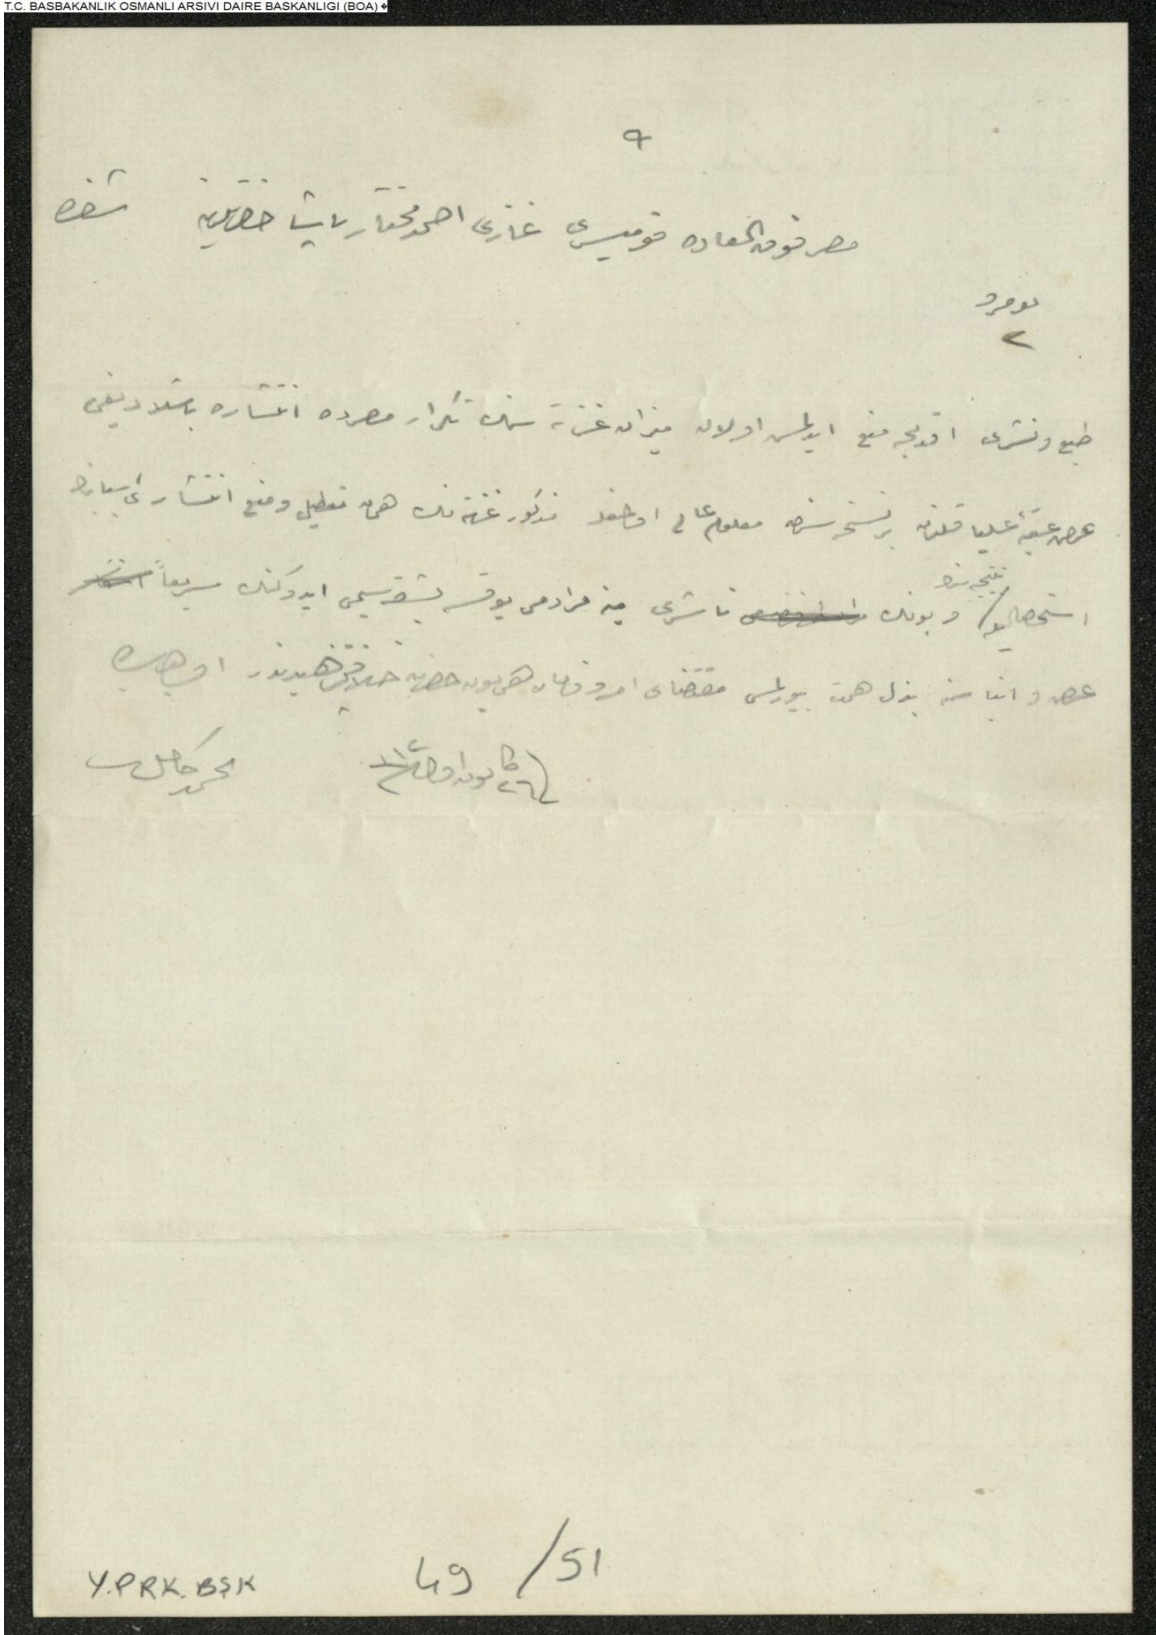 T.C. BASBAKANLIK OSMANLI ARSIVI DAIRE BASKANLIGI (BOA)
٩
مصر فوق العاده قومیسری غازی احمد مختار پاشا حضرتلرینه شفره
نومرو
٢
طبع و نشری اولجه منع ایدلمش اولان میزان غزته سنك تکرار مصرده انتشاره باشلادیغی
عرض عتبهٔ علیا قلنان بر نسخه سندن معلوم عالی اولمغله مذکور غزته نك همان تعطیلی و منع انتشاری اسبابنك
نتیجه سنك
استحصالیله و بونك ناشری مراد می یوقسه بشقه سیمی ایدوکنك سریعاً
عرض و انباسنه بذل همت بیورلمسی مقتضای امر و فرمان همایون حضرت خلافتپناهیدندر اولبابده
كانون اول
Y.PRK.BŞK 49/51